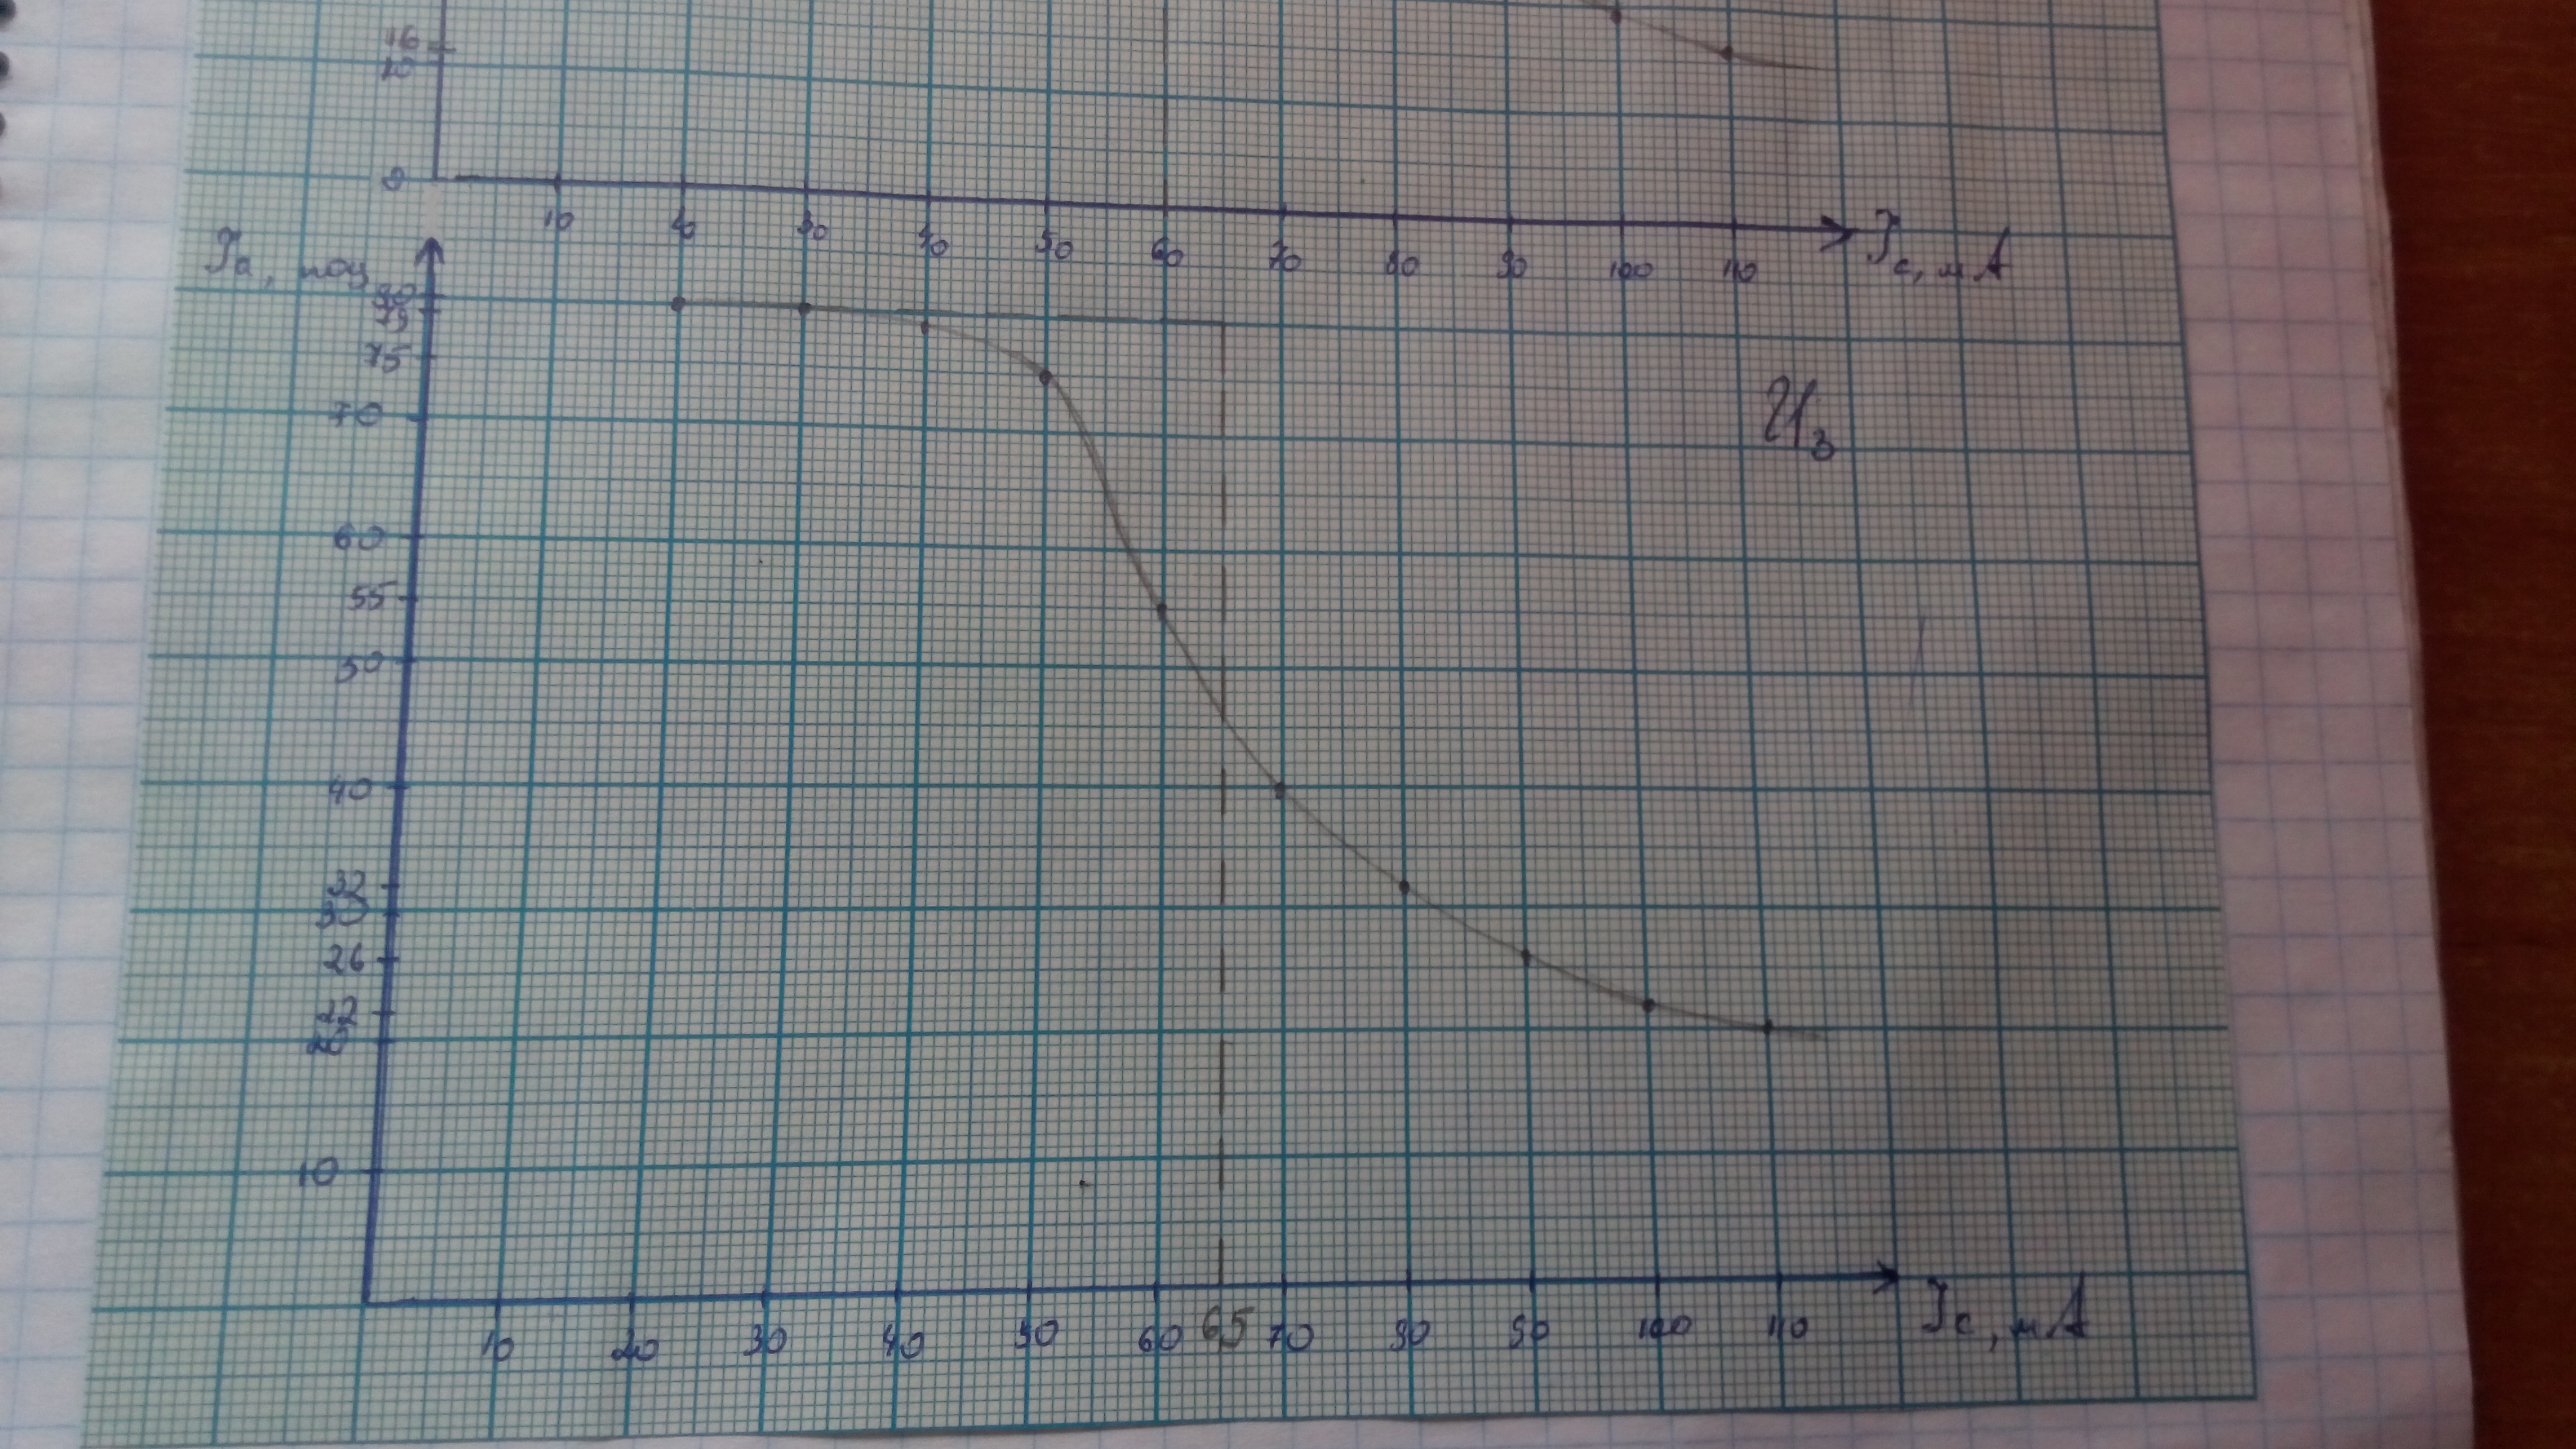 16
10
0
10 20 30 40 50 60 70 80 90 100 110 Ic, мА
Ia, 
80
79
75
70
U3
60
55
50
40
32
30
26
22
20
10
10 20 30 40 50 60 65 70 80 90 100 110 Ic, мА